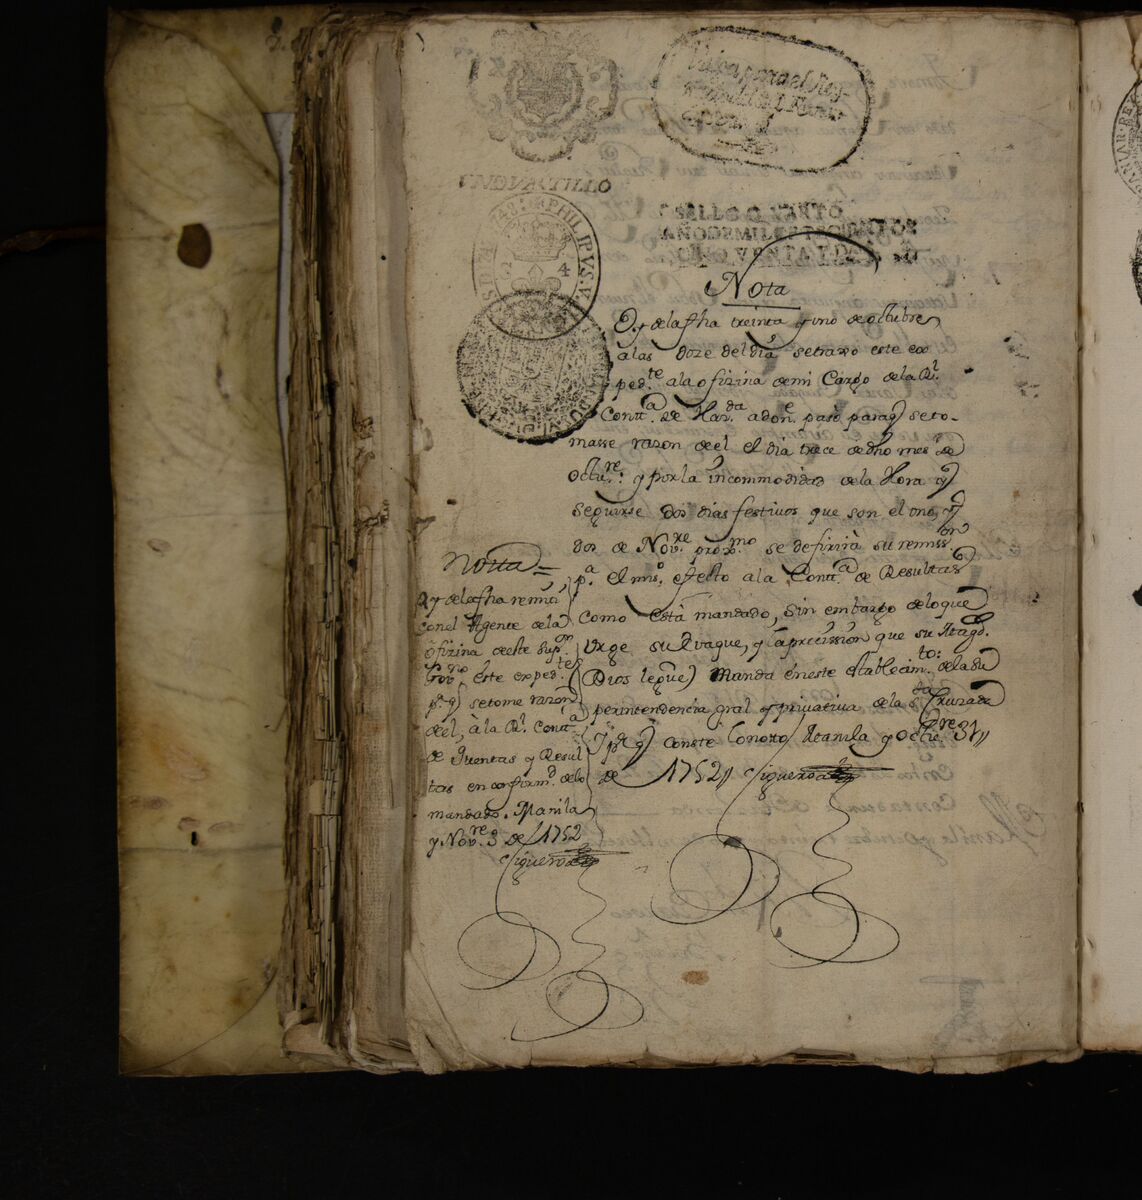 Valga para el Rey-
VNQVARTILLO
SELLO QVARTO
AÑO DE MIL SETECIENTOS
PHILIPVS.V.D
3 4
Nota
Oy dela fha treinta y uno de octubre
alas doze del dia setraxo este ex
ped.te ala ofizina demi Cargo dela Rl.
Contt.a de Haz.da adon.e paso paraq seto-
masse razon deel el dia trece de dho mes de
Octu.re: y por la incommodidad dela Hora y
seguirse dos dias festivos que son el uno, y
dos de Nov.re prox.mo se defirirà su remiss.on
p.a el mis.o efecto a la Contt.a de Resultas
como está mandado, sin embargo delo que
urge su
y la precission que su Magd.
(Dios le gue) Manda en este establecim.to: dela Su
perintendencia gral y privativa de la S.ta Cruzada
Y p.a q conste lo noto Manila y Octre 31,,
de 1752,, Figueroa
Notta =
Oy dela fha remiti
con el Agente de la
ofizina deste Sup.or
Gov.no este exped.te
p.a q setome razon
del, à la Rl. Contt.a
de Quentas y Resul
tas en confirm.d delo
mandado. Manila
y Nov.re 3 de 1752
Figueroa